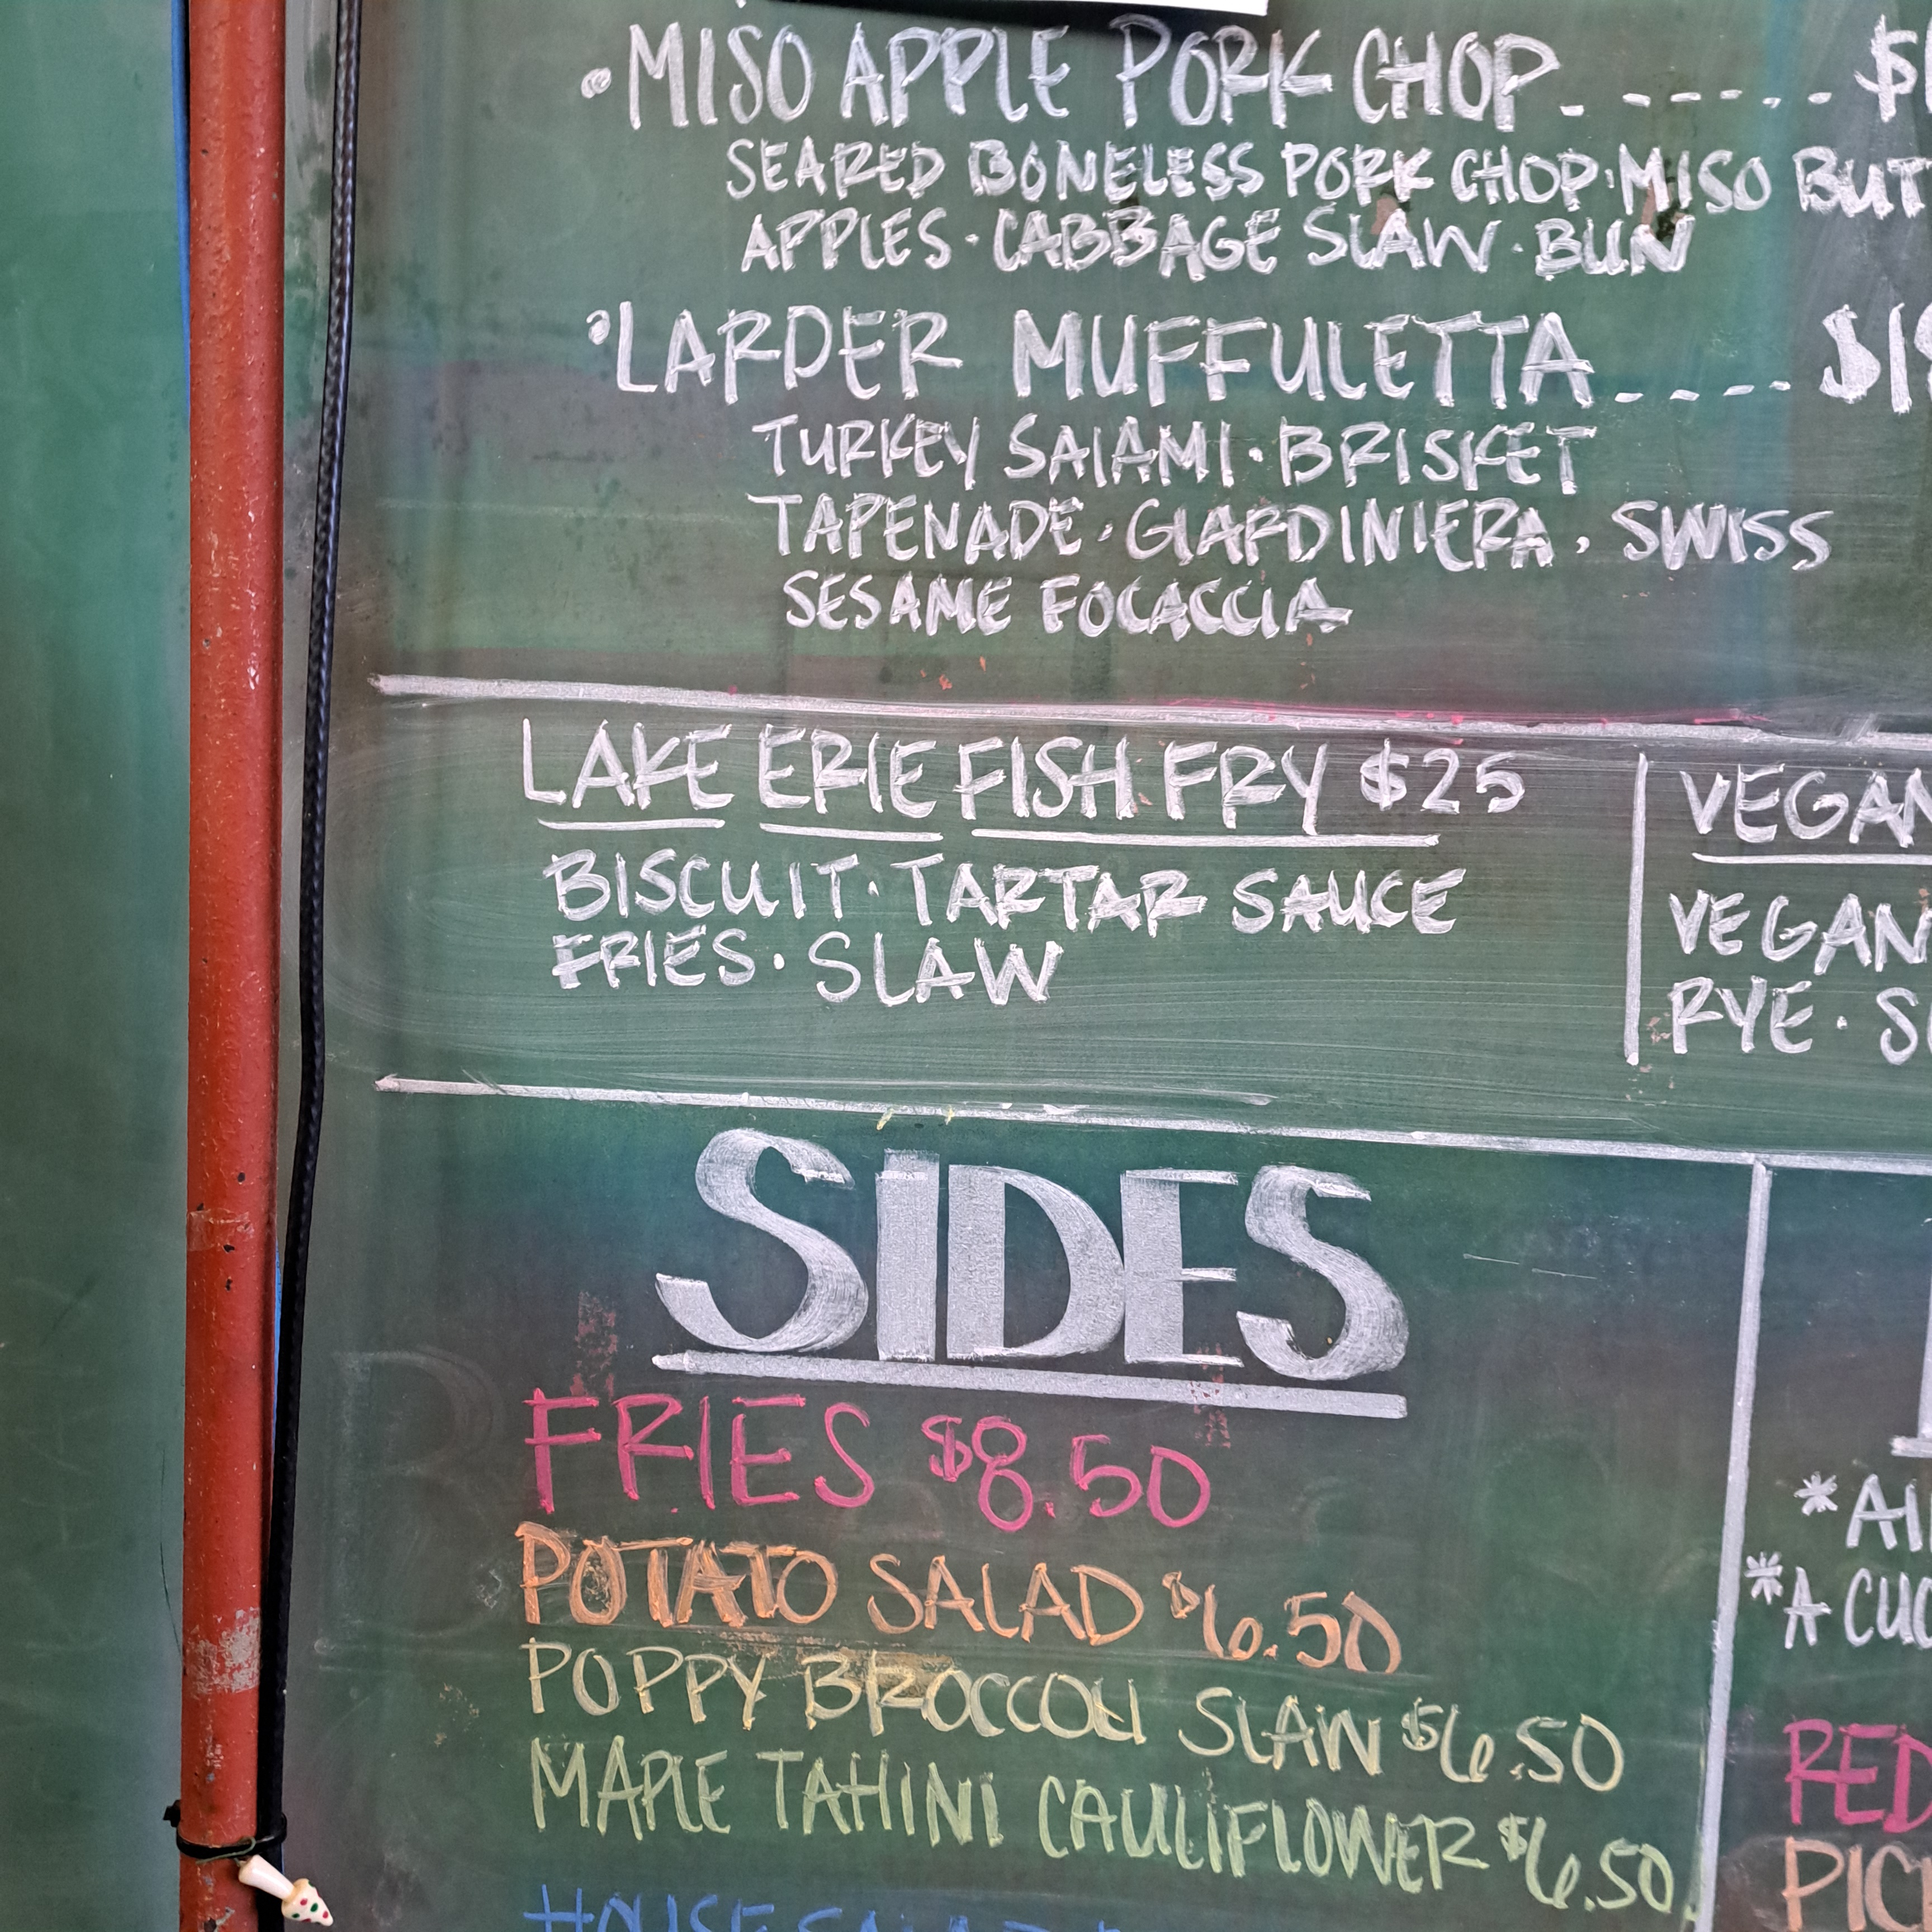 • MISO APPLE PORK CHOP ------ $1
SEARED BONELESS PORK CHOP · MISO BUT
APPLES · CABBAGE SLAW · BUN
• LARDER MUFFULETTA ---- $1
TURKEY SALAMI · BRISKET
TAPENADE · GIARDINIERA · SWISS
SESAME FOCACCIA
LAKE ERIE FISH FRY $25
BISCUIT · TARTAR SAUCE
FRIES · SLAW
VEGAN
VEGAN
RYE · S
SIDES
FRIES $8.50
POTATO SALAD $6.50
POPPY BROCCOLI SLAW $6.50
MAPLE TAHINI CAULIFLOWER $6.50
HOUSE SALAD
* A
* A CUC
RED
PIC